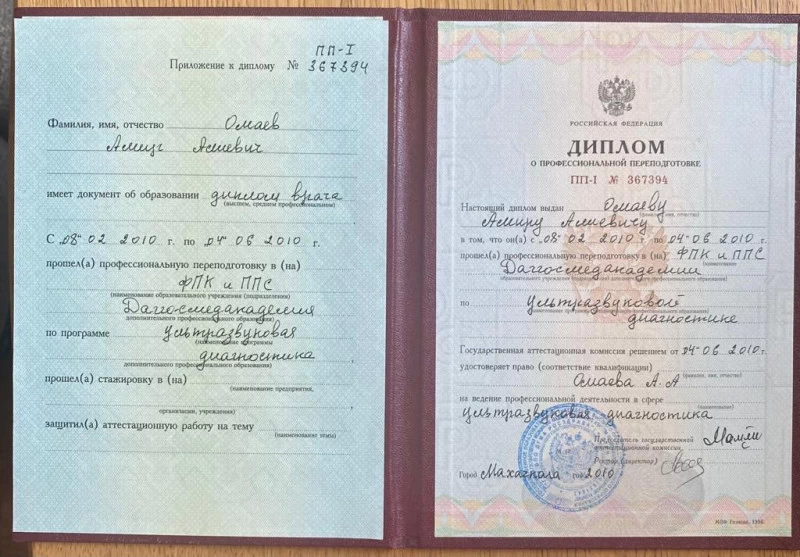 ПП-I
Приложение к диплому № 367394
Фамилия, имя, отчество Омаев
Амир Алиевич
имеет документ об образовании диплом врача
(высшем, среднем профессиональном)
С "08" 02 2010 г. по "04" 06 2010 г.
прошел(а) профессиональную переподготовку в (на)
ФПК и ППС
(наименование образовательного учреждения (подразделения)
Даггосмедакадемия
дополнительного профессионального образования)
по программе ультразвуковая
(наименование программы
диагностика
дополнительного профессионального образования)
прошел(а) стажировку в (на)
(наименование предприятия,
организации, учреждения)
защитил(а) аттестационную работу на тему
(наименование темы)
РОССИЙСКАЯ ФЕДЕРАЦИЯ
ДИПЛОМ
О ПРОФЕССИОНАЛЬНОЙ ПЕРЕПОДГОТОВКЕ
ПП-I № 367394
Настоящий диплом выдан Омаеву
(фамилия, имя, отчество)
Амиру Алиевичу
в том, что он(а) с "08" 02 2010 г. по "04" 06 2010 г.
прошел(а) профессиональную переподготовку в (на) ФПК и ППС
(наименование
Даггосмедакадемии
по ультразвуковой
диагностике
Государственная аттестационная комиссия решением от "04" 06 2010 г.
удостоверяет право (соответствие квалификации)
(фамилия, имя, отчество)
Омаева А.А
на ведение профессиональной деятельности в сфере
(наименование)
ультразвуковая диагностика
Председатель государственной
аттестационной комиссии
Ректор (директор)
Город Махачкала год 2010